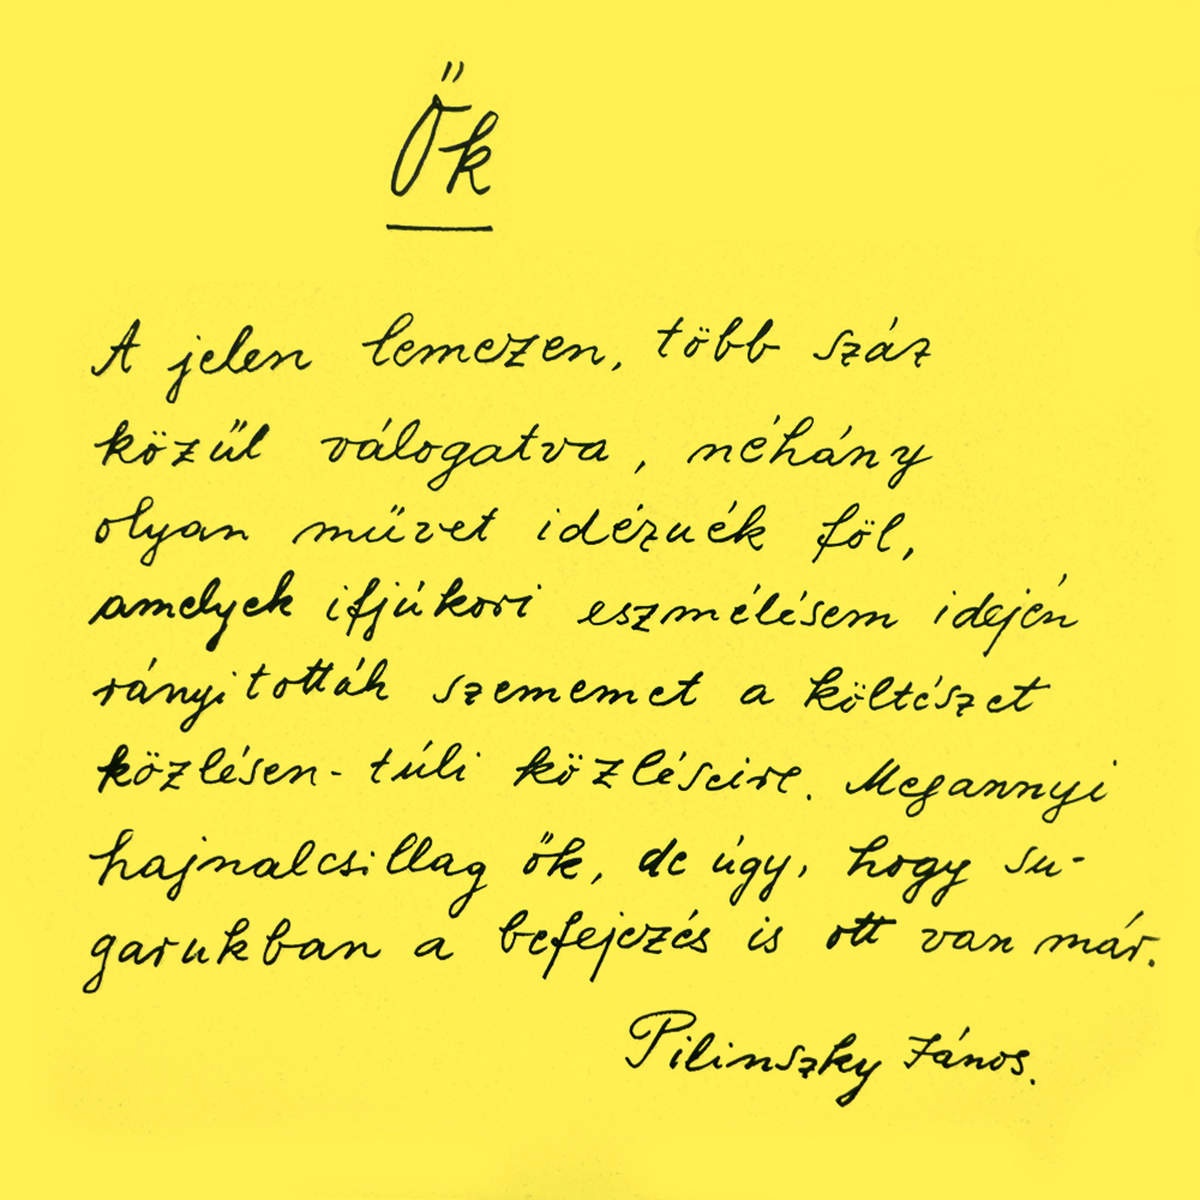 Ők
A jelen lemezen, több száz
közűl válogatva, néhány
olyan művet idéznék föl,
amelyek ifjúkori eszmélésem idején
rányitották szememet a költészet
közlésen-túli közléseire. Megannyi
hajnalcsillag ők, de úgy, hogy su-
garukban a befejezés is ott van már.
Pilinszky János.